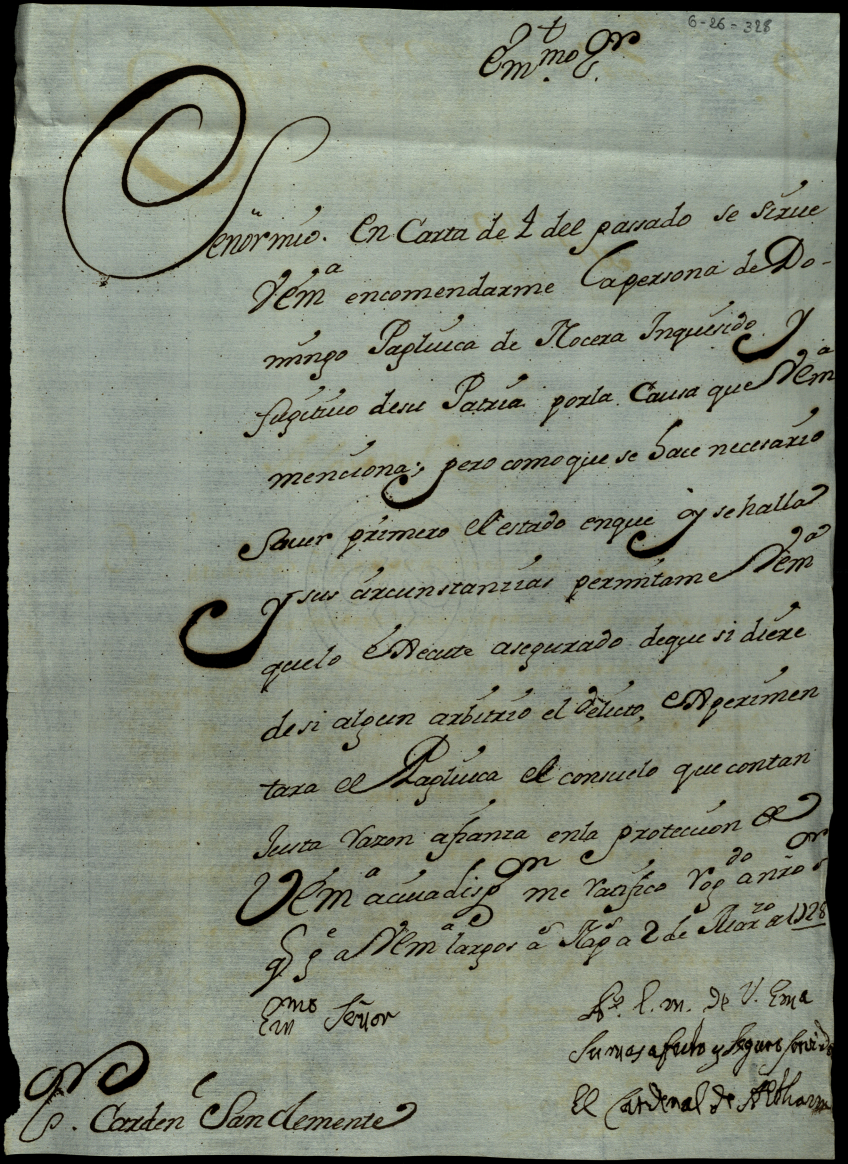 6-26-328
Em.mo S.r
Señor mio. En Carta de 4 del passado se sirue
VEm.a encomendarme la persona de Do-
mingo Pagluica de Nocera Inquisido y
fugitiuo desu Patria porla Causa que VEm.a
menciona; pero como que se hace necesario
sauer primero el estado enque oy se halla
y sus circunstanzias permitame VEm.a
quelo execute asegurado deque si diere
de si algun arbitrio el delicto, experimen
tara el Pagluica el consuelo que contan
Justa razon afianza enla protección de
VEm.a acuia disp.on me ratifico Rog.do a nro S.r
g.e a VEm.a largos a.s Nap.s a 2 de Marzo de 1728
Em.mo Señor
B. l. m. de V. Em.a
Su mas afecto y Seguro Servidor
El Cardenal de Althann
S.r Carden.l San Clemente